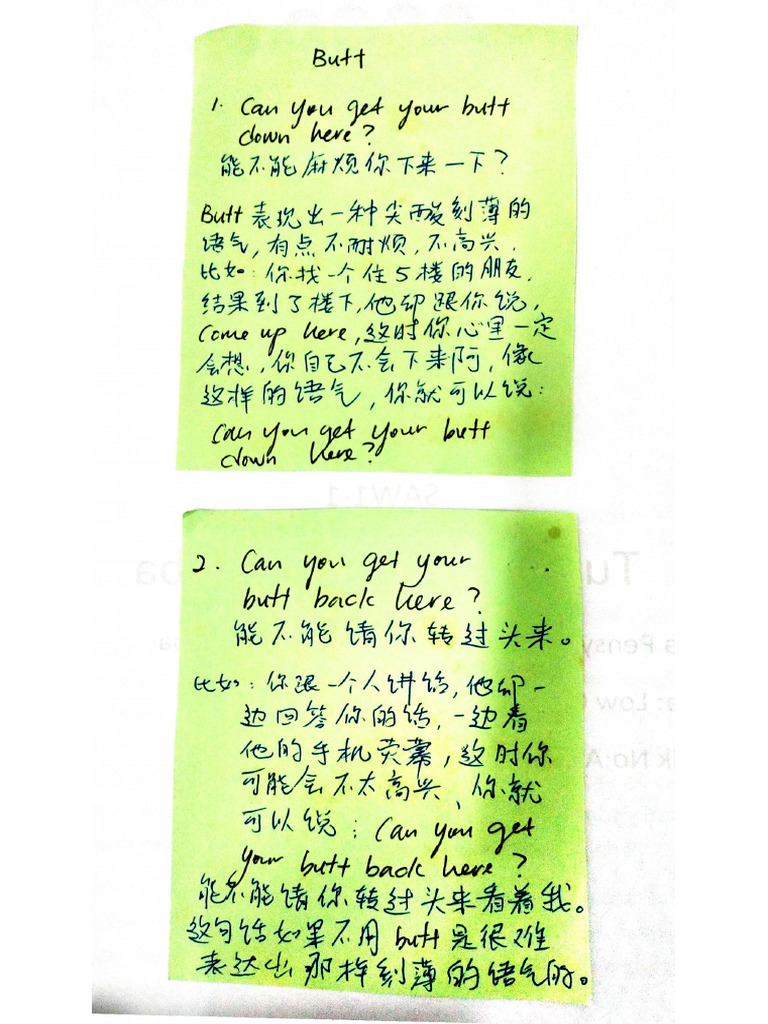 Butt
1. Can you get your butt
down here?
能不能麻烦你下来一下？
Butt 表现出一种尖酸刻薄的
语气，有点不耐烦，不高兴．
比如：你找一个住5楼的朋友，
结果到了楼下，他却跟你说，
Come up here，这时你心里一定
会想，你自己不会下来阿，像
这样的语气，你就可以说：
Can you get your butt
down here?
2. Can you get your
butt back here?
能不能请你转过头来。
比如：你跟一个人讲话，他却一
边回答你的话，一边看
他的手机荧幕，这时你
可能会不太高兴，你就
可以说：Can you get
your butt back here?
能不能请你转过头来看着我。
这句话如果不用 butt 是很难
表达出那样刻薄的语气的。